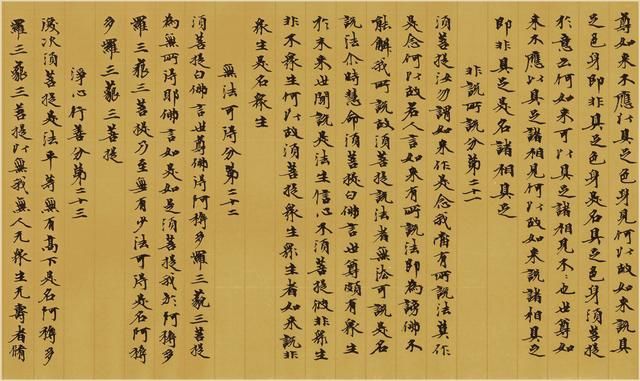 尊如来不應以具足色身見何以故如来說具
足色身即非具足色身是名具足色身須菩提
於意云何如来可以具足諸相見不〻也世尊如
来不應以具足諸相見何以故如来說諸相具足
即非具足是名諸相具足
非說所說分第二十一
須菩提汝勿謂如来作是念我當有所說法莫作
是念何以故若人言如来有所說法即為謗佛不
能解我所說故須菩提說法者無法可說是名
說法尒時慧命須菩提白佛言世尊頗有眾生
於未来世聞說是法生信心不須菩提彼非眾生
非不眾生何以故須菩提眾生眾生者如来說非
眾生是名眾生
無法可得分第二十二
須菩提白佛言世尊佛得阿耨多羅三藐三菩提
為無所得耶佛言如是如是須菩提我於阿耨多
羅三藐三菩提乃至無有少法可得是名阿耨
多羅三藐三菩提
淨心行善分第二十三
復次須菩提是法平等無有高下是名阿耨多
羅三藐三菩提以無我無人无眾生无壽者脩